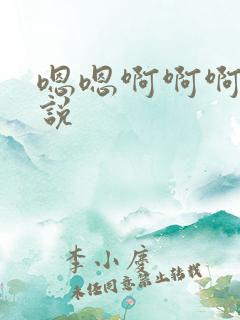 嗯嗯啊啊啊
說
李小度
未经同意禁止转载